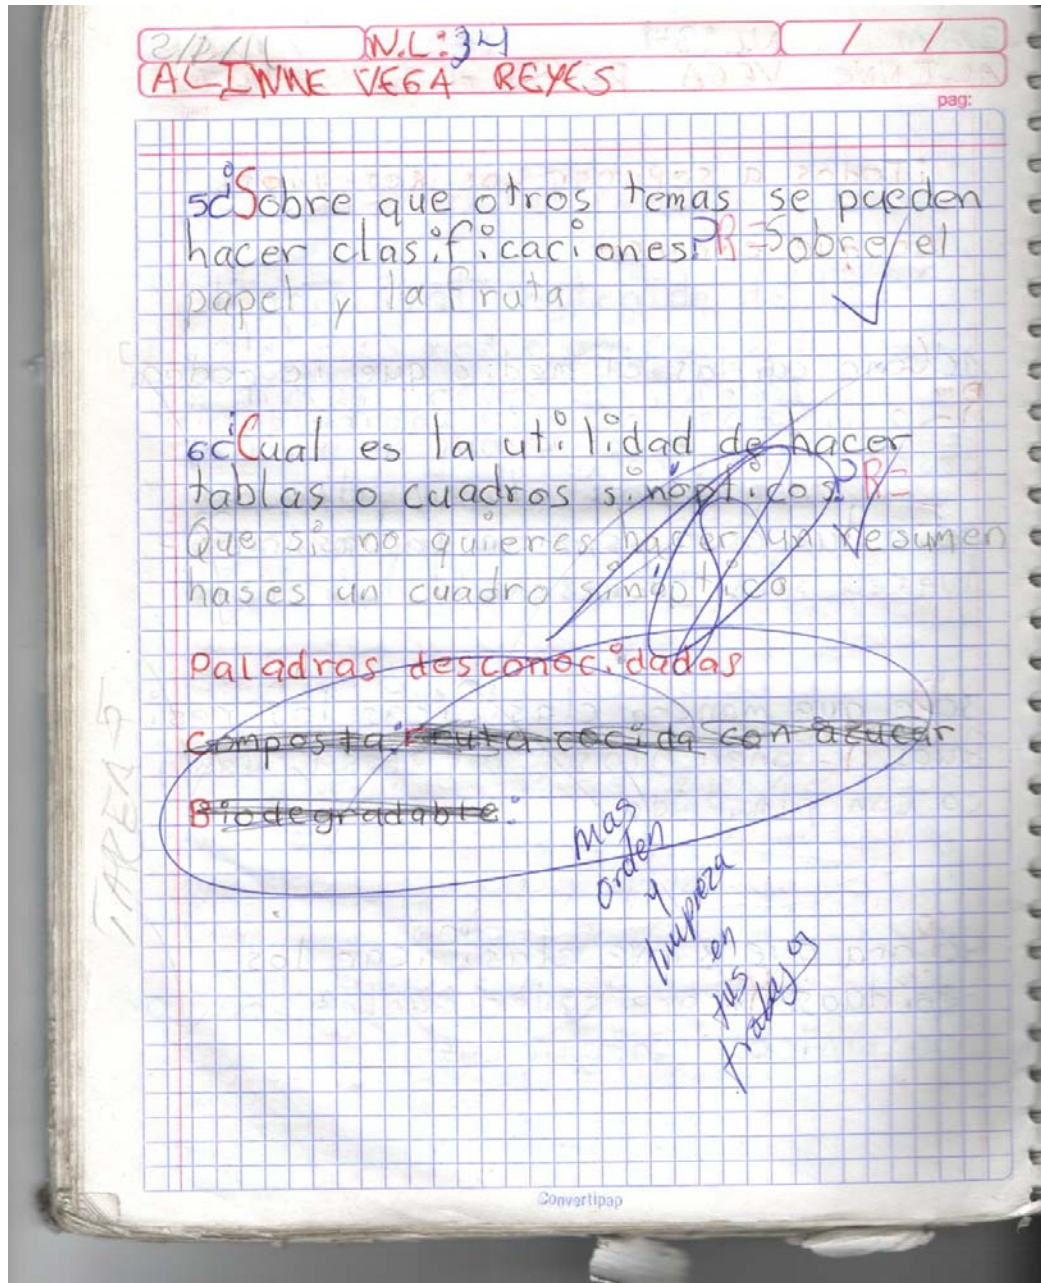 2/2/11 N.L:34 / /
ALINNE VEGA REYES
pag:
5¿Sobre que otros temas se pueden
hacer clasificaciones? R=Sobre el
papel y la fruta
6¿Cual es la utilidad de hacer
tablas o cuadros sinópticos? R=
Que si no quieres hacer un resumen
hases un cuadro sinóptico
Paladras desconocidadas
Composta: Fruta cocida con azucar
Biodegradable:
mas
orden
y
limpieza
en
tus
trabajos
TAREA 5
Convertipap